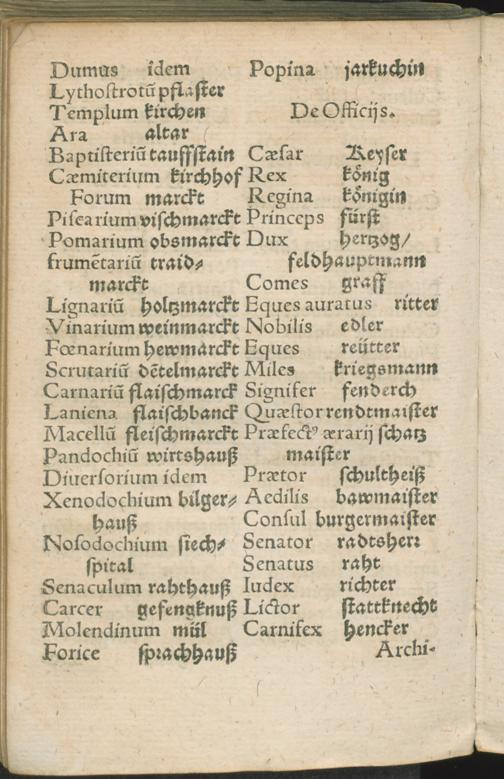 Dumus idem
Lythostrotū pflaster
Templum kirchen
Ara altar
Baptisteriū tauffstain
Cæmiterium kirchhof
Forum marckt
Piscarium vischmarckt
Pomarium obsmarckt
frumētariū traid⸗
marckt
Lignariū holtzmarckt
Vinarium weinmarckt
Fœnarium hewmarckt
Scrutariū dētelmarckt
Carnariū flaischmarck
Laniena flaischbanck
Macellū fleischmarckt
Pandochiū wirtshauß
Diuersorium idem
Xenodochium bilger⸗
hauß
Nosodochium siech⸗
spital
Senaculum rahthauß
Carcer gefengknuß
Molendinum mül
Forice sprachhauß
Popina jarkuchin
De Officijs.
Cæsar Keyser
Rex könig
Regina königin
Princeps fürst
Dux hertzog/
feldhauptmann
Comes graff
Eques auratus ritter
Nobilis edler
Eques reütter
Miles kriegsmann
Signifer fenderch
Quæstor rendtmaister
Præfectꝰ ærarij schatz
maister
Prætor schultheiß
Aedilis bawmaister
Consul burgermaister
Senator radtsherr
Senatus raht
Iudex richter
Lictor stattknecht
Carnifex hencker
Archi-